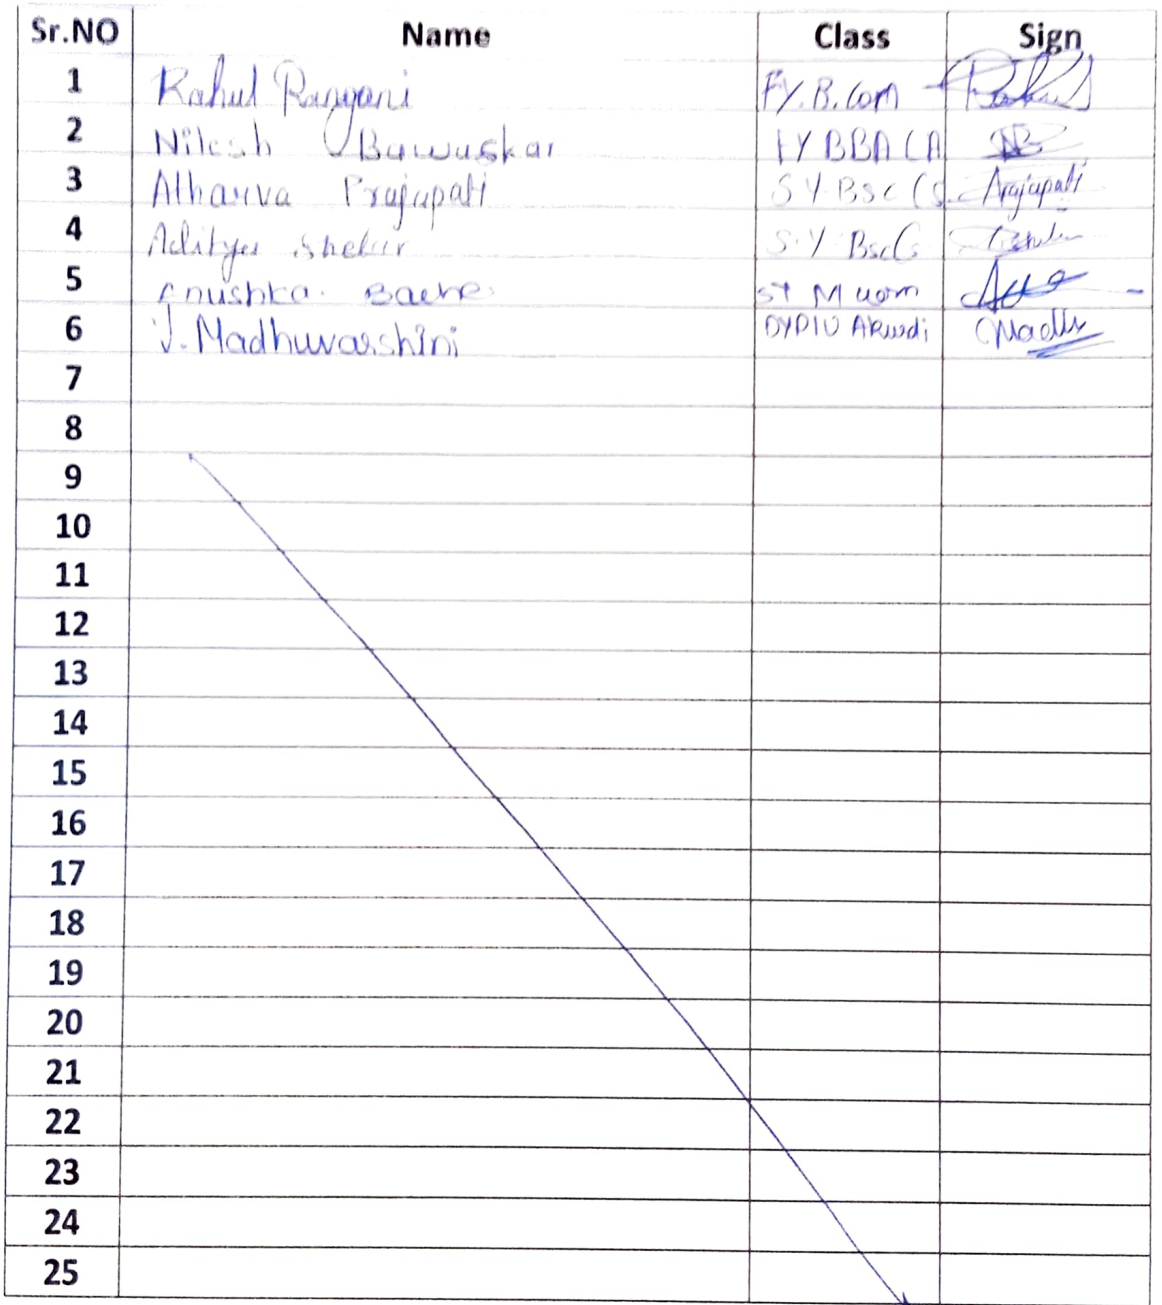 Sr.NO Name Class Sign
1 Rahul Rangani F.Y.B.Com Rahul
2 Nilesh Bawuskar FY BBA CA NB
3 Atharva Prajapati S Y Bsc CS Prajapati
4 Aditya Shelar S.Y. Bsc CS
5 Anushka. st M com
6 V. Madhuvarshini DYPIU Akurdi Madhu
7
8
9
10
11
12
13
14
15
16
17
18
19
20
21
22
23
24
25